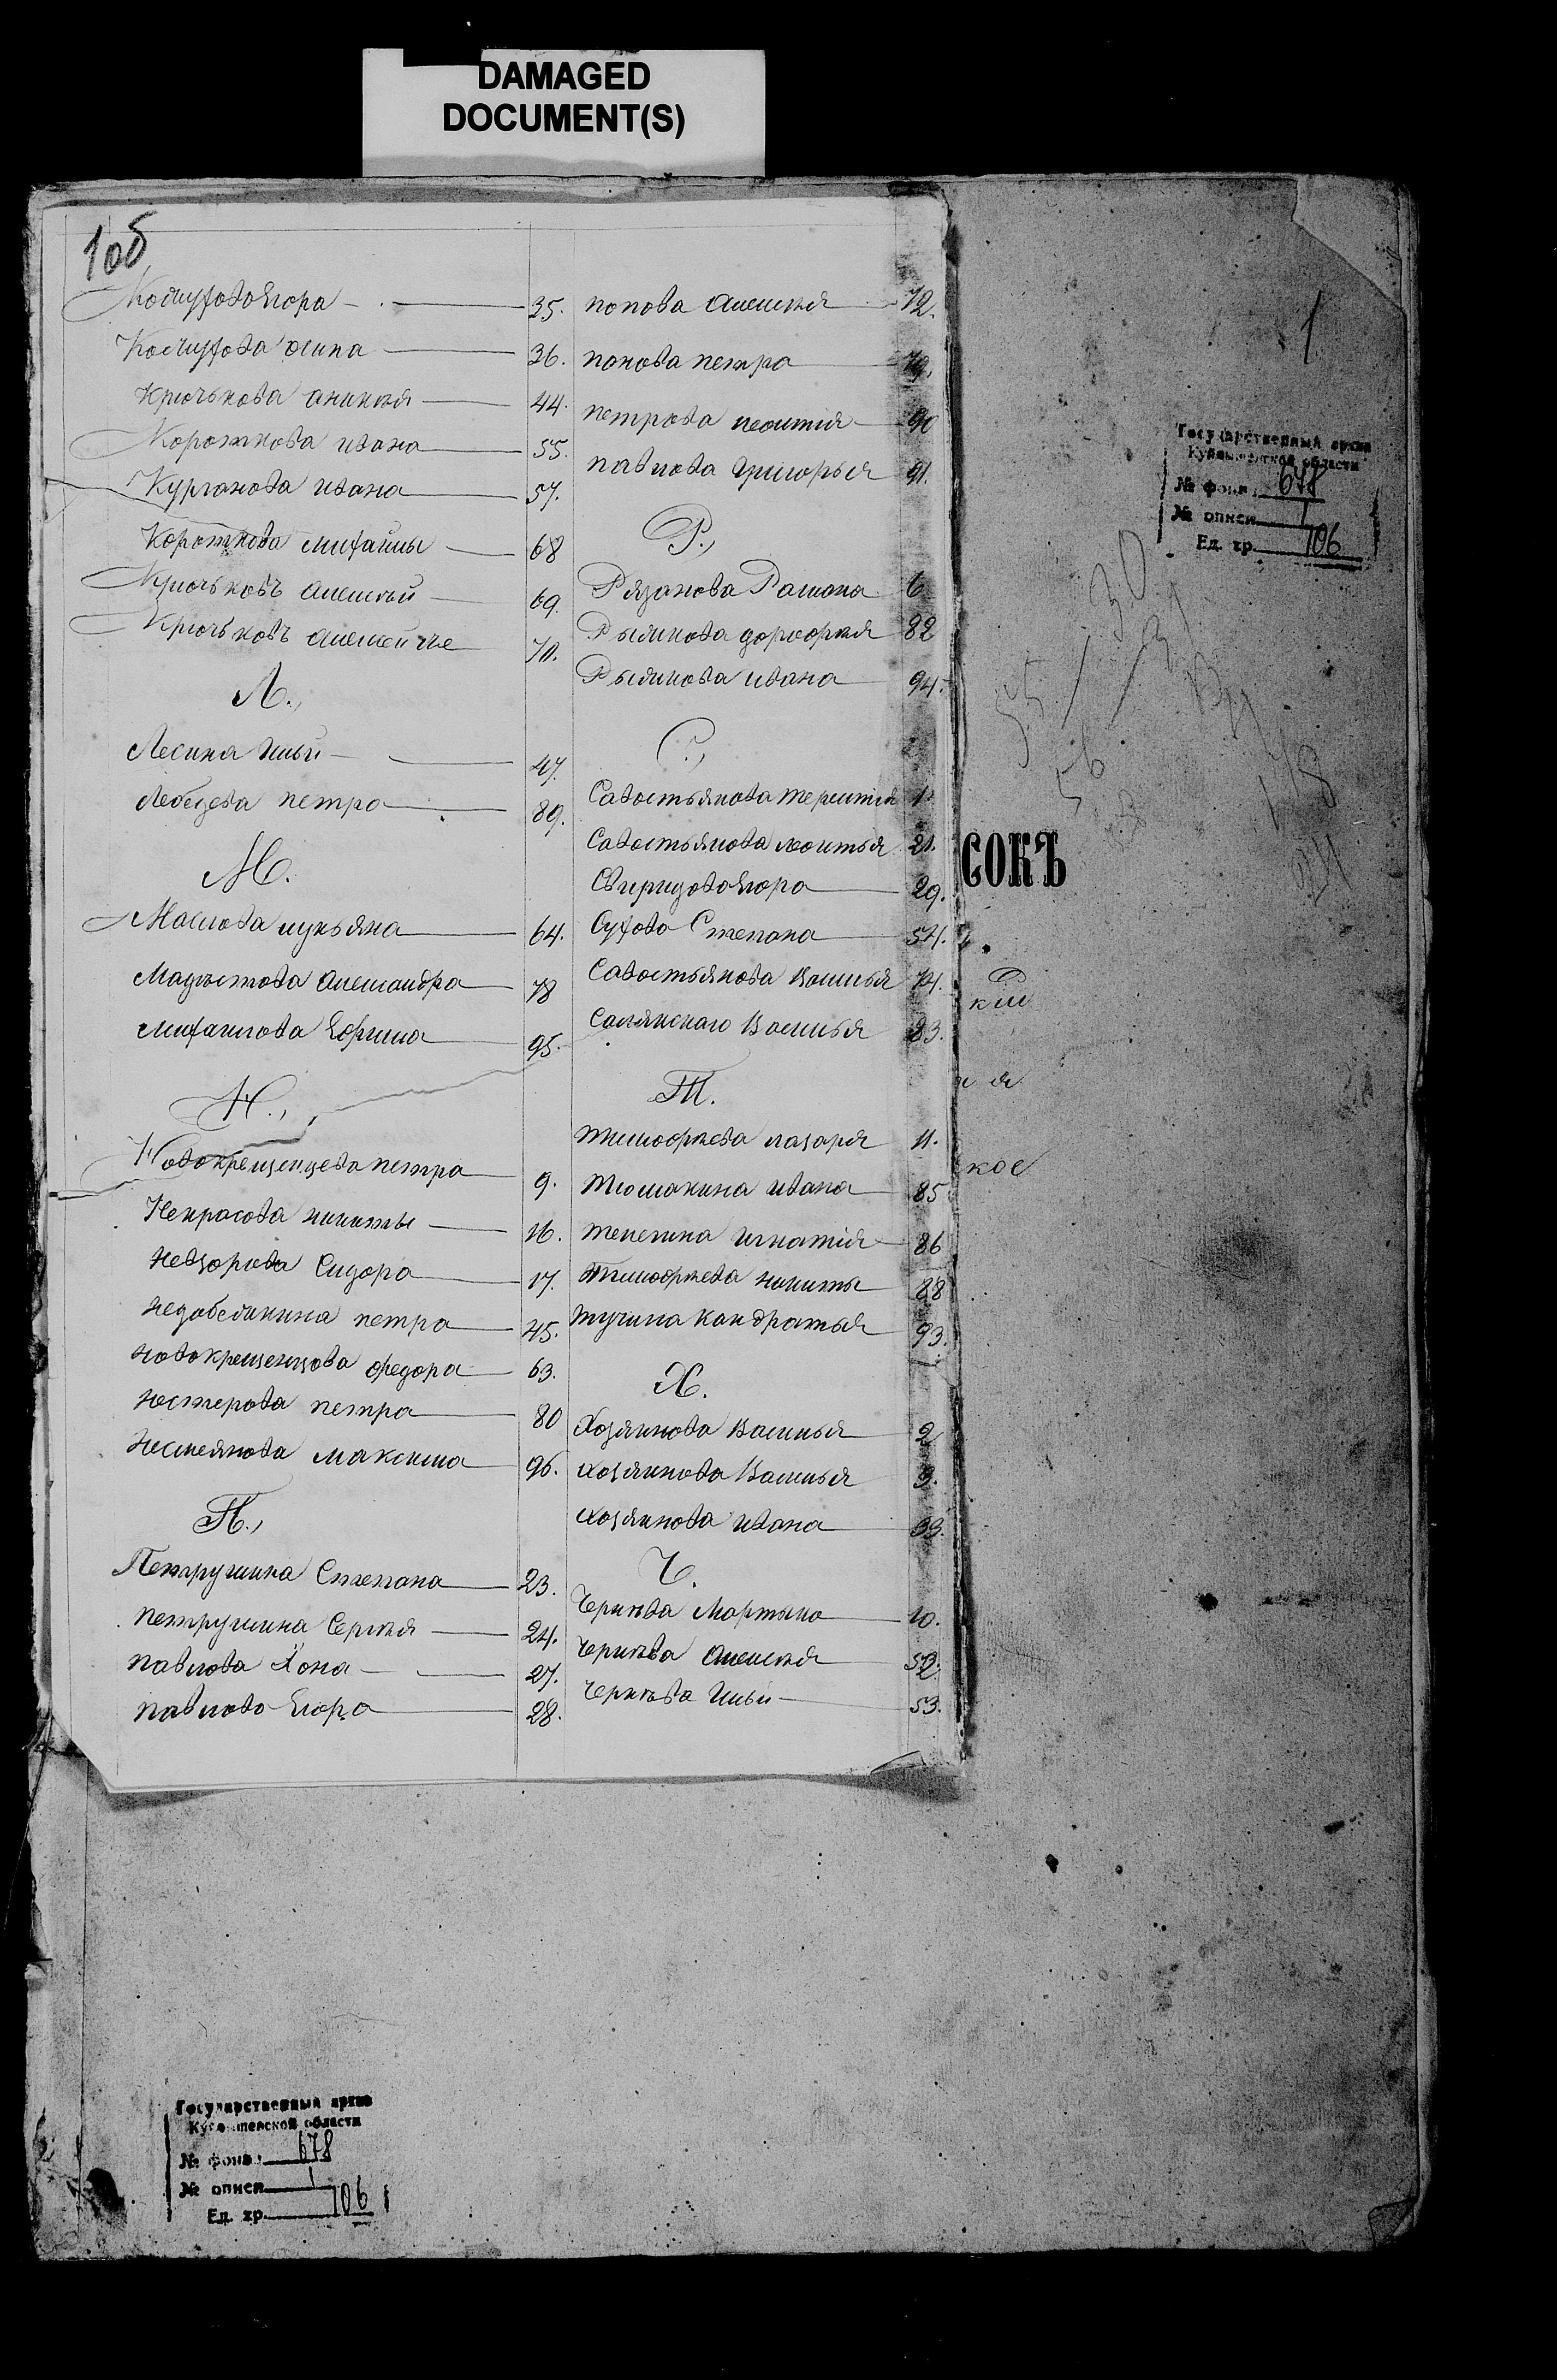 DAMAGED
DOCUMENT(S)
1об
Кожухова Егора 35.
Кожухова осипа 36.
Крючькова аникѣя 44.
Короткова ивана 55.
Курганова ивана 57.
Короткова михайлы 68
Крючьковъ алексѣй 69.
Крючьковъ алексей 70.
Л.
Лесина Ильи 47.
Лебедева петра 89.
М.
Маслова лукьяна 64.
Модѣстова александра 78
михаилова Ефима 95.
Н.
Новокрещенцева петра 9.
Некрасова никиты 16.
невзорова Сидора 17.
недобежкина петра 45.
новокрещенцова федора 63.
нестерова петра 80
несмеянова максима 96.
П.
Петрушина Степана 23.
петрушина Сергѣя 24.
павлова Iона 27.
павлова Егора 28.
попова алексѣя 72.
попова петра 79.
петрова леонтия 90
павлова Григорья 91.
Р.
Рязанова Рамона 6
Рыжкова дорофѣя 82
Рыжкова ивана 94.
С.
Савостьянова терентия 1.
Савостьянова леонтья 21.
Свиридова Егора 29.
Сухова Степана 54.
Савостьянова Василья 74.
Салянскаго Василья 83.
Т.
тимофѣева лазаря 11.
тюмакина ивана 85
телегина игнатiя 86
тимофѣева никиты 88
тучина Кондратья 93.
Х.
Хозяинова Василья 2
хозяинова Василья 3.
хозяинова ивана 33.
Ч.
Чернѣва Мартына 10.
чернѣва алексѣя 52.
чернѣва Ильи 53.
1
Государственный архив
Куйбышевской области
№ фонд 678
№ описи 1
Ед. хр. 106
СОКЪ
кое
Государственный архив
Куйбышевской области
№ фонд 678
№ описи 1
Ед. хр. 106